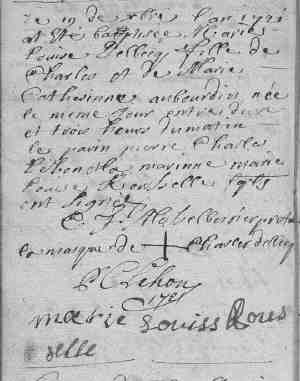 Le 19 de xbre l'an 1721
at Ete baptisee Marie
Louise Dellecq fille de
Charles et de Marie
Catherinne aubourdin nee
le meme jour entre deux
et trois heurs du matin
le parin pierre Charles
Lehon et la marinne marie
Louise Rousselle lesqls
ont signez
pretre
la marque de + Charles dellecq
P C Lehon
1721
marie Louiss Rous
selle